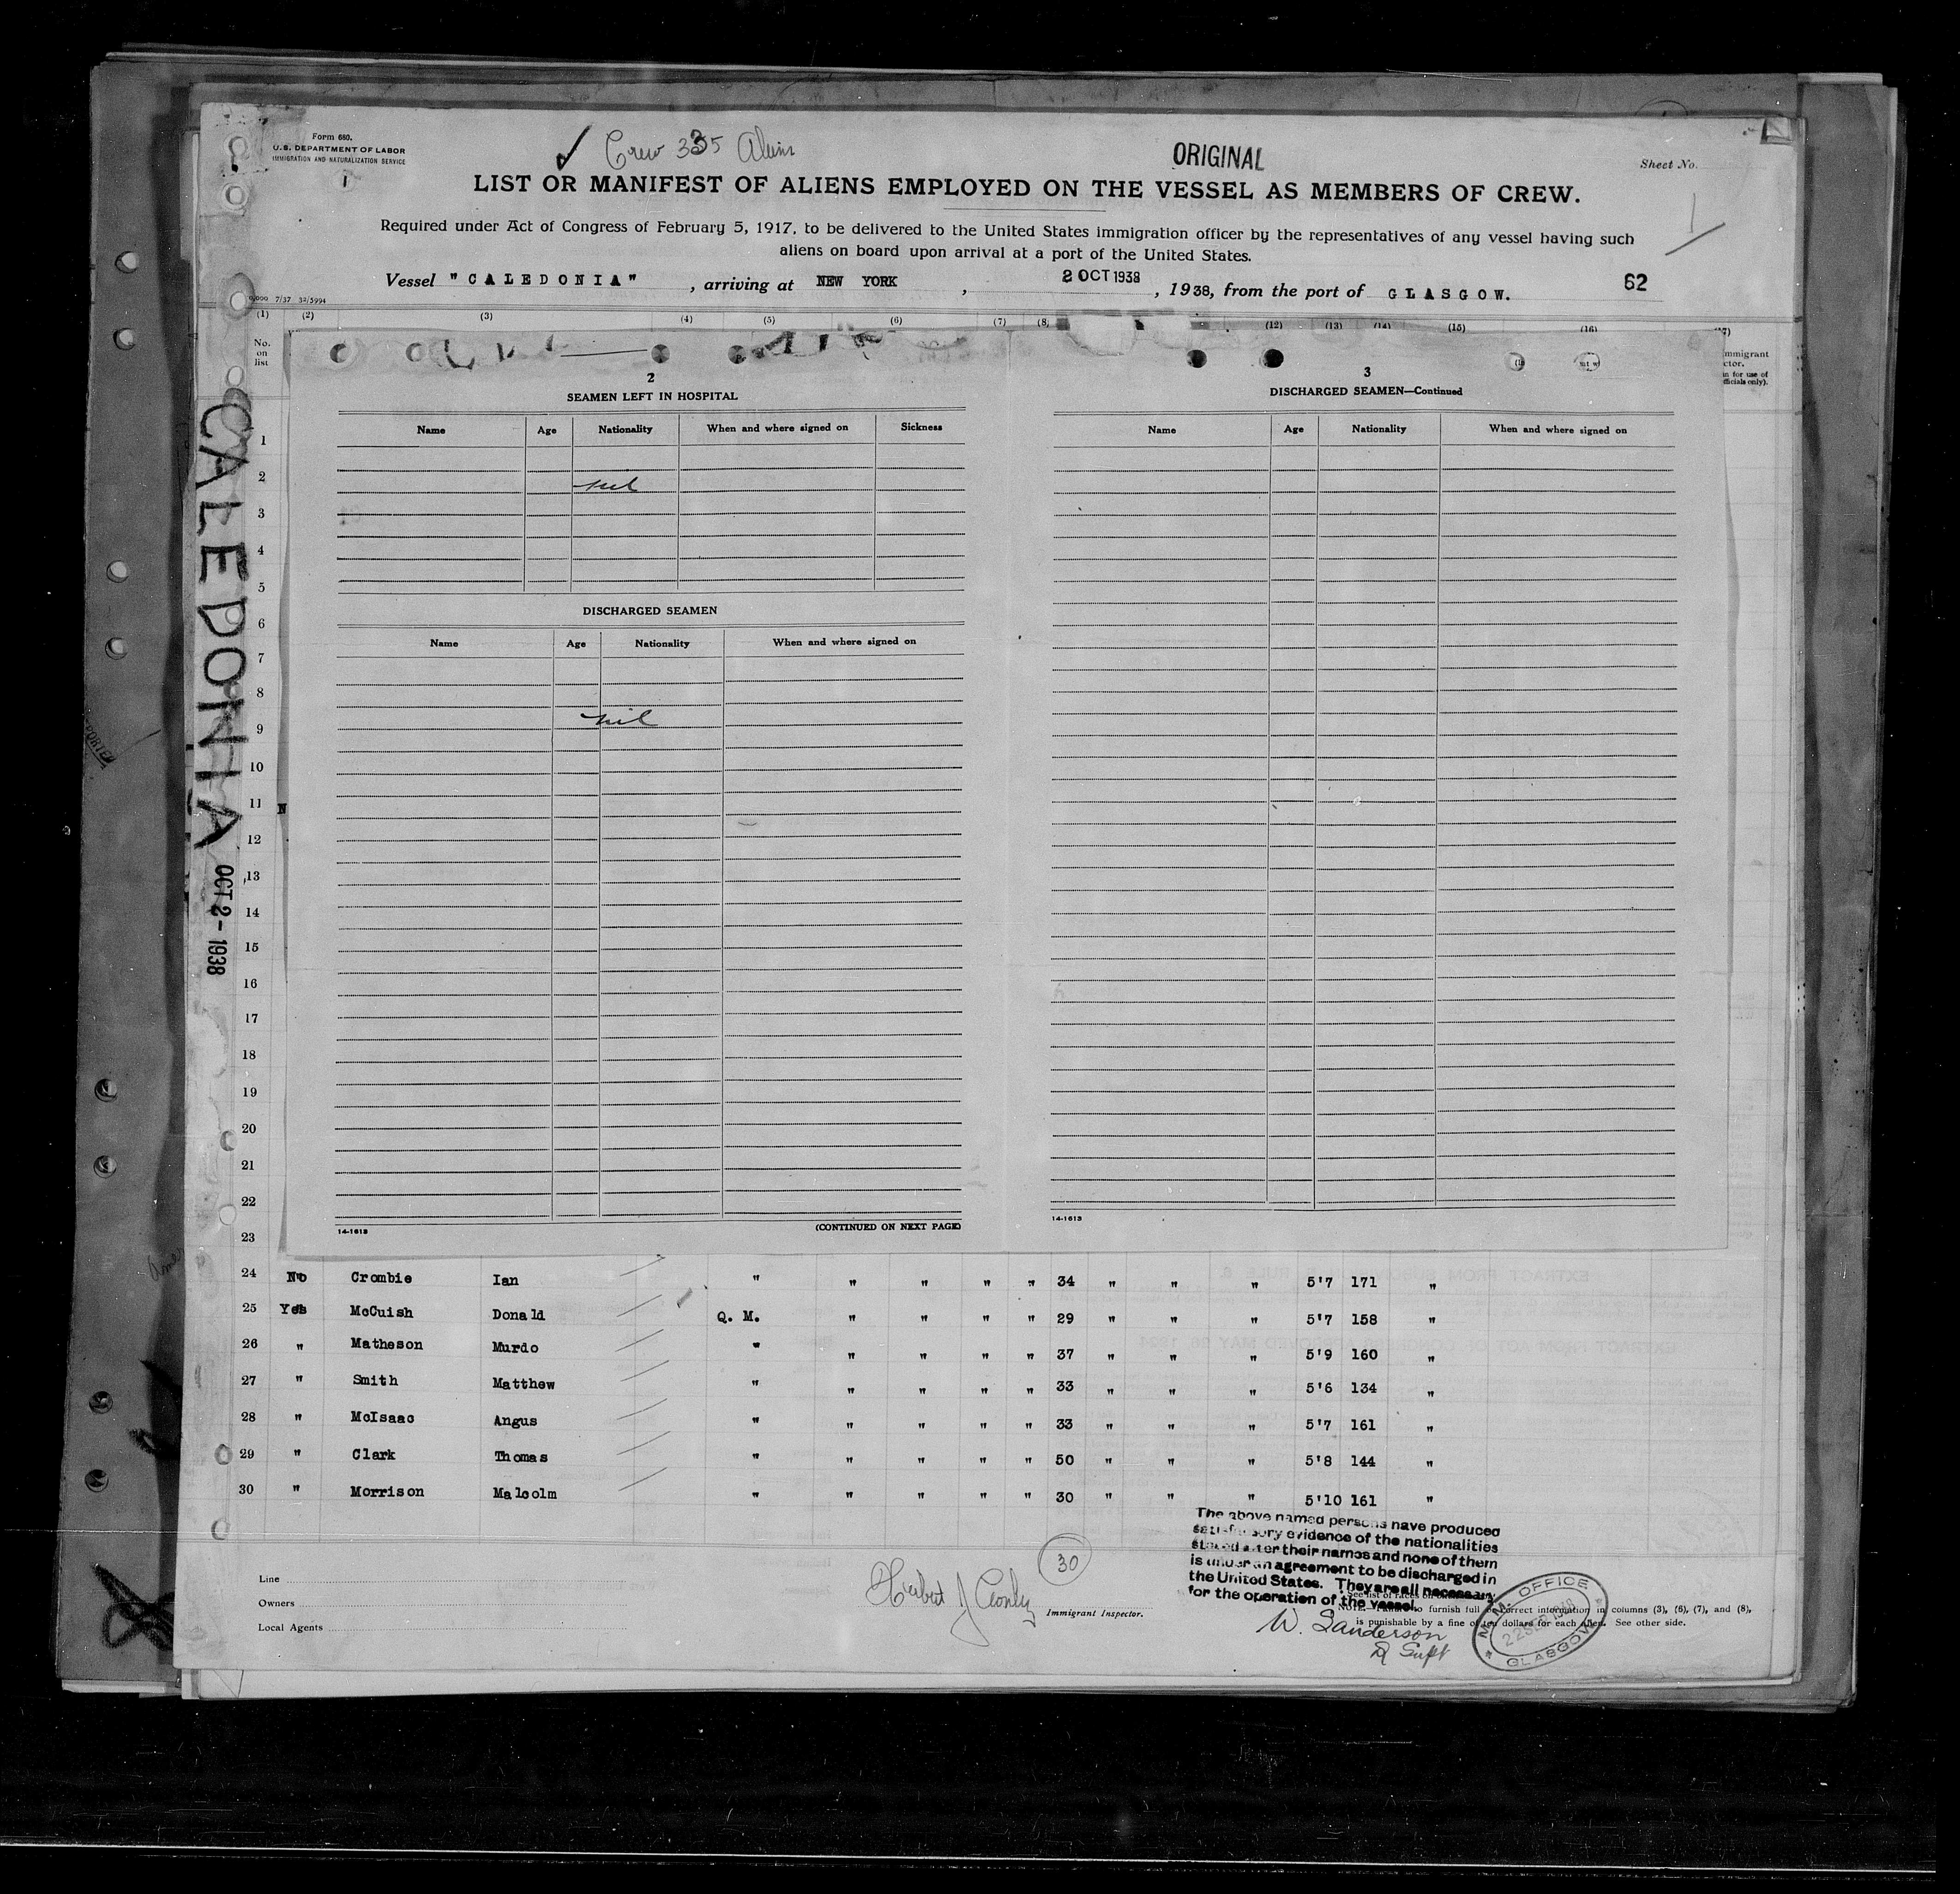 Form 680.
U.S. DEPARTMENT OF LABOR
IMMIGRATION AND NATURALIZATION SERVICE
1
✓ Crew 335 Aliens
ORIGINAL
Sheet No.
1
LIST OR MANIFEST OF ALIENS EMPLOYED ON THE VESSEL AS MEMBERS OF CREW.
Required under Act of Congress of February 5, 1917, to be delivered to the United States immigration officer by the representatives of any vessel having such
aliens on board upon arrival at a port of the United States.
Vessel "CALEDONIA", arriving at NEW YORK, 2 OCT 1938, 1938, from the port of GLASGOW. 62
7/37 32/5994
(1) (2) (3) (4) (5) (6) (7) (8) (12) (13) (14) (15) (16)
No. on list
CALEDONIA
OCT 2 - 1938
2
SEAMEN LEFT IN HOSPITAL
Name Age Nationality When and where signed on Sickness
nil
DISCHARGED SEAMEN
Name Age Nationality When and where signed on
nil
14-1613 (CONTINUED ON NEXT PAGE)
3
DISCHARGED SEAMEN—Continued
Name Age Nationality When and where signed on
14-1613
1
2
3
4
5
6
7
8
9
10
11 N
12
13
14
15
16
17
18
19
20
21
22
23
24 No Crombie Ian " " " " " 34 " " " 5'7 171 "
25 Yes McCuish Donald Q. M. " " " " 29 " " " 5'7 158 "
26 " Matheson Murdo " " " " " 37 " " " 5'9 160 "
27 " Smith Matthew " " " " " 33 " " " 5'6 134 "
28 " McIsaac Angus " " " " " 33 " " " 5'7 161 "
29 " Clark Thomas " " " " " 50 " " " 5'8 144 "
30 " Morrison Malcolm " " " " " 30 " " " 5'10 161 "
The above named persons have produced
satisfactory evidence of the nationalities
stated after their names and none of them
is under an agreement to be discharged in
the United States. They are all necessary
for the operation of the vessel.
W. Sanderson
D Supt
30
Line
Owners
Local Agents
Herbert J
Immigrant Inspector.
to furnish full or correct information in columns (3), (6), (7), and (8),
is punishable by a fine of ten dollars for each alien. See other side.
M. M. OFFICE
22 SEP 1938
GLASGOW